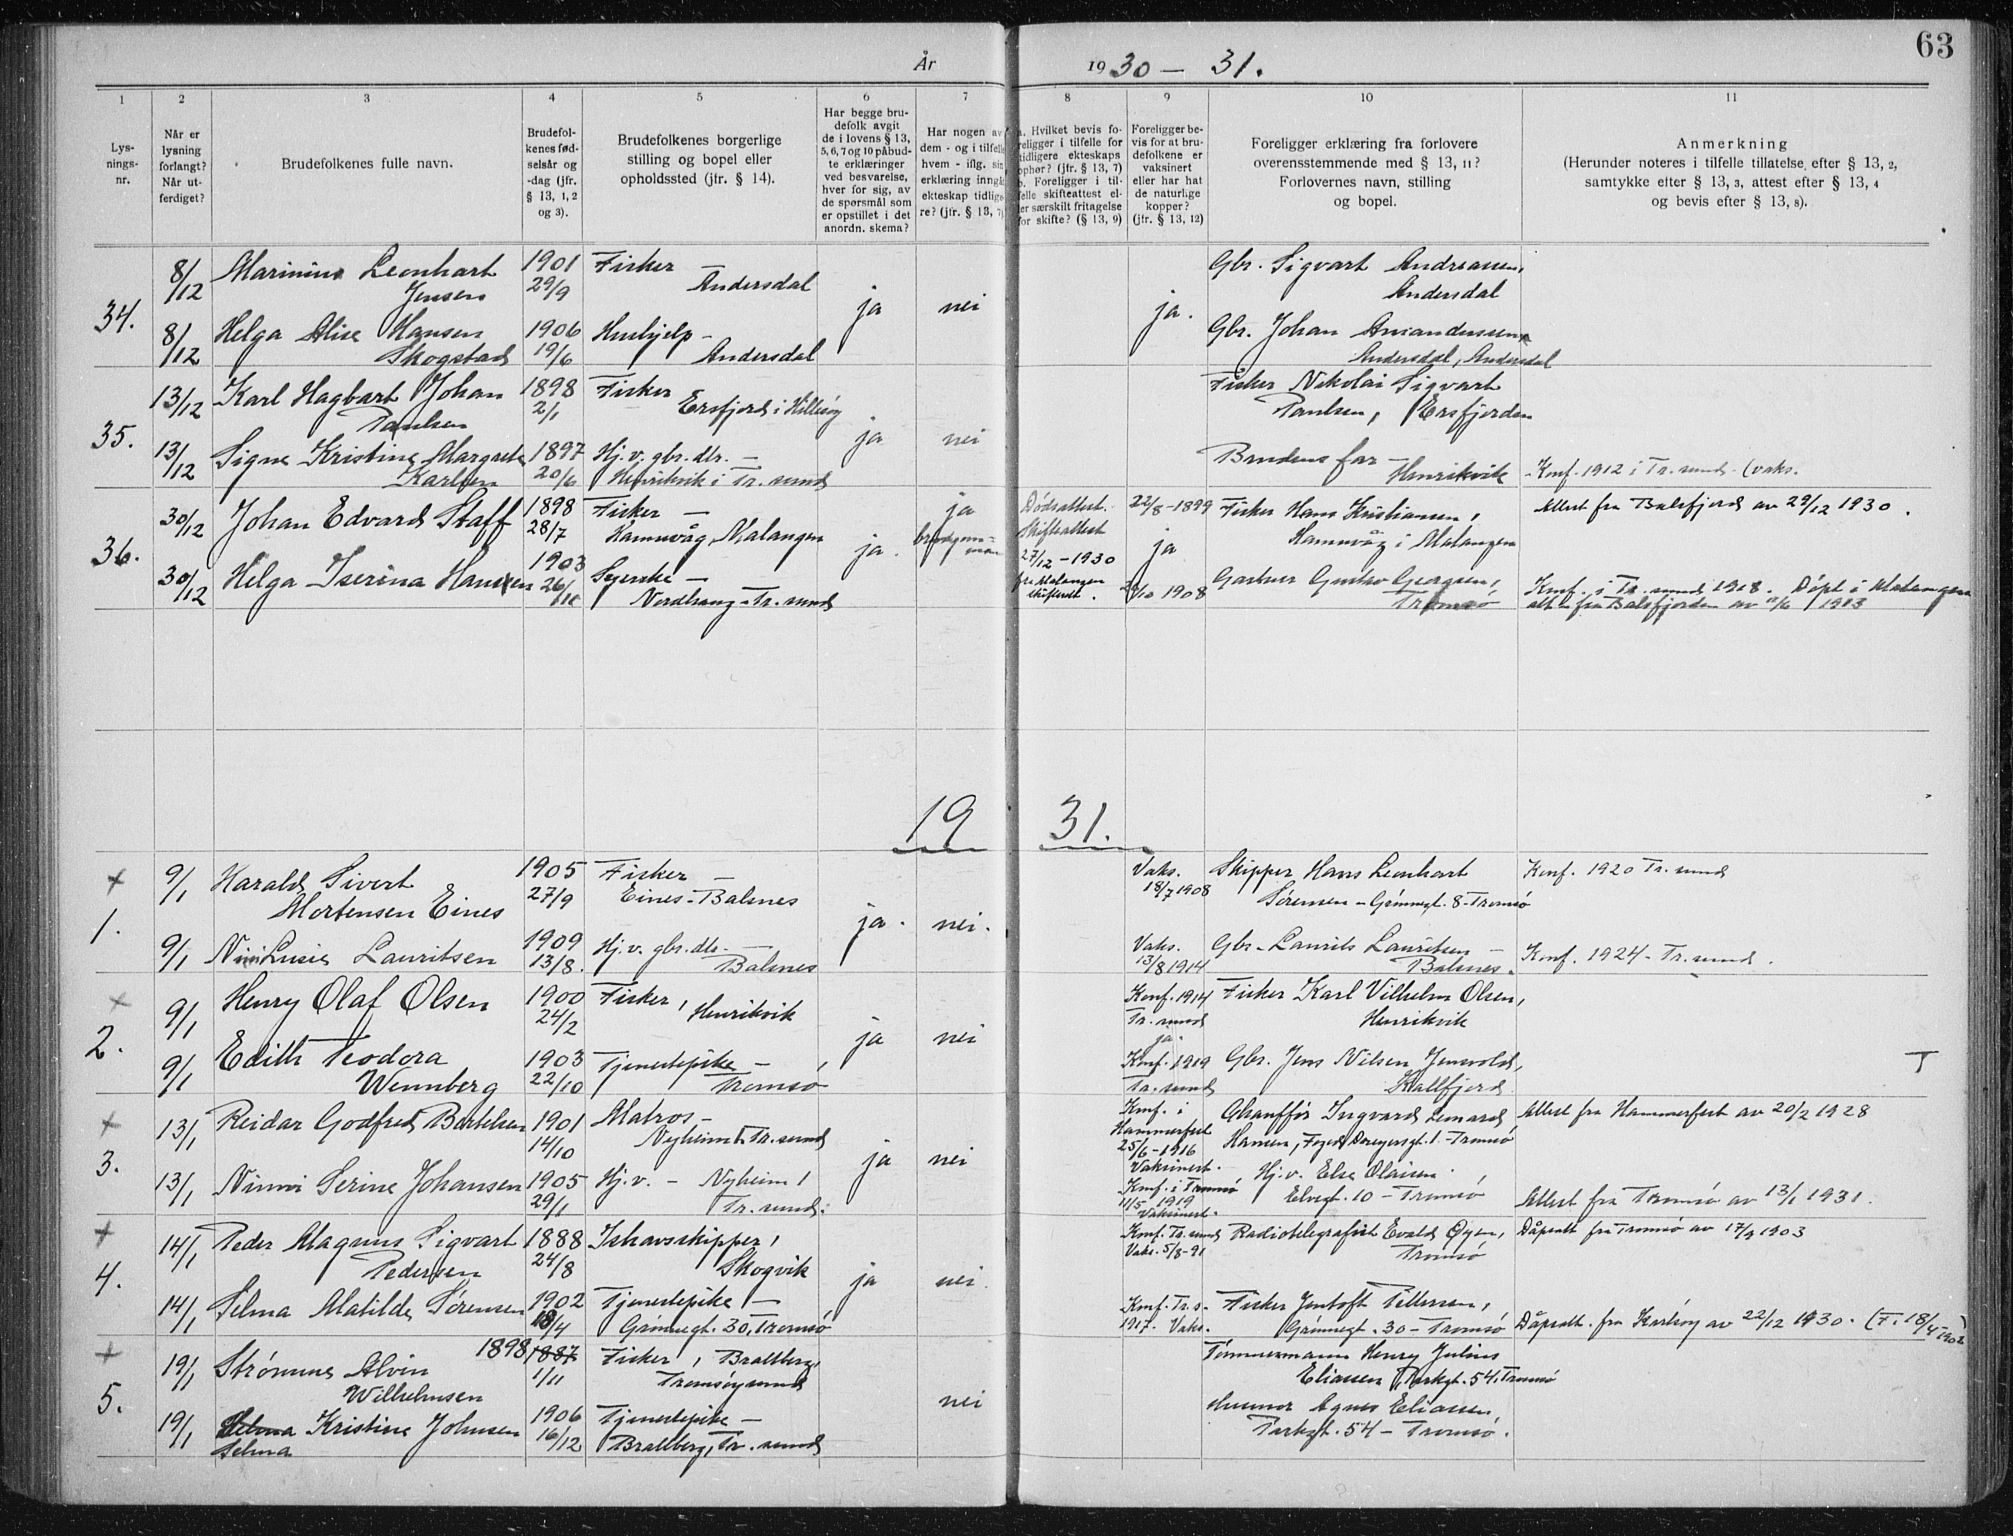 63
År 1930 - 31.
1 2 3 4 5 6 7 8 9 10 11
Lys-
nings-
nr.
Når er
lysning
forlangt?
Når ut-
ferdiget?
Brudefolkenes fulle navn.
Brudefol-
kenes fød-
selsår og
-dag (jfr.
§ 13, 1, 2
og 3).
Brudefolkenes borgerlige
stilling og bopel eller
opholdssted (jfr. § 14).
Har begge bru-
defolk avgit
de i lovens § 13,
5, 6, 7 og 10 påbud-
te erklæringer
ved besvarelse,
hver for sig, av
de spørsmål som
er opstillet i det
anordn. skema?
Har nogen av
dem - og i tilfelle
hvem - iflg. sin
erklæring inngå
ekteskap tidlige
re? (jfr. § 13, 7)
a. Hvilket bevis fo-
religger i tilfelle for
tidligere ekteskaps
ophør? (jfr. § 13, 7)
b. Foreligger i til-
felle skifteattest el-
ler særskilt fritagelse
for skifte? (§ 13, 9)
Foreligger be-
vis for at bru-
defolkene er
vaksinert
eller har hat
de naturlige
kopper?
(jfr. § 13, 12)
Foreligger erklæring fra forlovere
overensstemmende med § 13, 11?
Forlovernes navn, stilling
og bopel.
Anmerkning
(Herunder noteres i tilfelle tillatelse efter § 13, 2,
samtykke efter § 13, 3, attest efter § 13, 4
og bevis efter § 13, 8).
34.
8/12 Marinius Leonhart 1901 Fisker - Gbr. Sigvart Andreassen,
Jensen 29/9 Andersdal ja nei ja. Andersdal
8/12 Helga Alise Hansen 1906 Hushjelp - Gbr. Johan Amandussen
Skogstad 19/6 Andersdal Andersdal, Andersdal
35.
13/12 Karl Hagbart Johan 1898 Fisker Fisker Nikolai Sigvart
Paulsen 2/1 Ersfjord i Hillesøy ja nei Paulsen, Ersfjorden
13/12 Signe Kristine Margrete 1897 Hj. v. gbr. dtr. - Brudens far -
Karlsen 20/6 Henrikvik i Tr. sund Henrikvik - Konf. 1912 i Tr. sund - (vaks.
36.
30/12 Johan Edvard Staff 1898 Fisker - ja Dødsattest. 22/8-1899 Fisker Hans Kristiansen, Attest fra Balsfjord av 29/12 1930.
28/7 Hamnvåg, Malangen ja. brudgom- Skifteattest ja Hamnvåg i Malangen
man 27/12-1930
30/12 Helga Iserina Hansen 1903 Syerske - fra Malangen /10 1908 Gartner Gustav Georgsen, Konf. i Tr. sund 1918. Døpt i Malangen
26/11 Nordtrang - Tr. sund skifterett. Tromsø att. fra Balsfjorden av /6 1913
19 31.
1.
+ 9/1 Harald Sivert 1905 Fisker - Vaks. Skipper Hans Leonhart Konf. 1920 Tr. sund
Mortensen Eines 27/9 Eines - Balsnes ja. nei. 18/7 1908 Sørensen - Grønnegt. 8 - Tromsø
9/1 Lusie Lauritsen 1909 Hj. v. gbr. dtr. - Vaks. Gbr. Laurits Lauritsen - Konf. 1924 - Tr. sund.
13/8. Balsnes 13/8 1914 Balsnes.
2.
+ 9/1 Henry Olaf Olsen 1900 Fisker, Konf. 1914 Fisker Karl Vilhelm Olsen,
24/2 Henrikvik ja nei Tr. sund Henrikvik
ja.
9/1 Edith Teodora 1903 Tjenestepike - Konf. 1919 Gbr. Jens Nilsen Jensvold, T
Wennberg 22/10 Tromsø Tr. sund Kallfjord.
3.
+ 13/1 Reidar Godfred Bertelsen 1901 Matros - Konf. i Chauffør Ingvard Lenard Attest fra Hammerfest av 20/2 1928
14/10 Nyheim Tr. sund ja nei Hammerfest Hansen, Foged Dreyersgt. 1 - Tromsø
25/6-1916
Vaksinert.
13/1 Ninni Serine Johansen 1905 Hj. v. - Nyheim, Konf. i Tromsø Hj. v. Else Olaisen,
29/1 Tr. sund. 11/5 1919 Elvegt. 10 - Tromsø Attest fra Tromsø av 13/1 1931.
Vaksinert.
4.
+ 14/1 Peder Magnus Sigvart 1888 Ishavsskipper, Konf. Tr. sund Radiotelegrafist Evald Øyen, Dåpsatt fra Tromsø av 17/9 1903
Pedersen 24/8 Skogvik ja nei. Vaks. 5/8-91 Tromsø
14/1 Selma Matilde Sørensen 1902 Tjenestepike - Konf. Tr. s. Fisker Jentoft Pettersen,
18/4 Grønnegt. 30, Tromsø 1917. Vaks. Grønnegt. 30 - Tromsø Dåpsatt. fra Karlsøy av 22/12 1930. (F. 18/4 1902)
5.
+ 19/1 Strømme Alvin 1898 1887 Fisker, Bratberg, Tømmermann Henry Julius
Wilhelmsen 1/11 Tromsøysund nei Eliassen, Parkgt. 54, Tromsø
19/1 Kristine Johnsen 1906 Tjenestepike - Agnes Eliassen,
Selma 16/12 Bratberg, Tr. sund Parkgt. 54 - Tromsø.